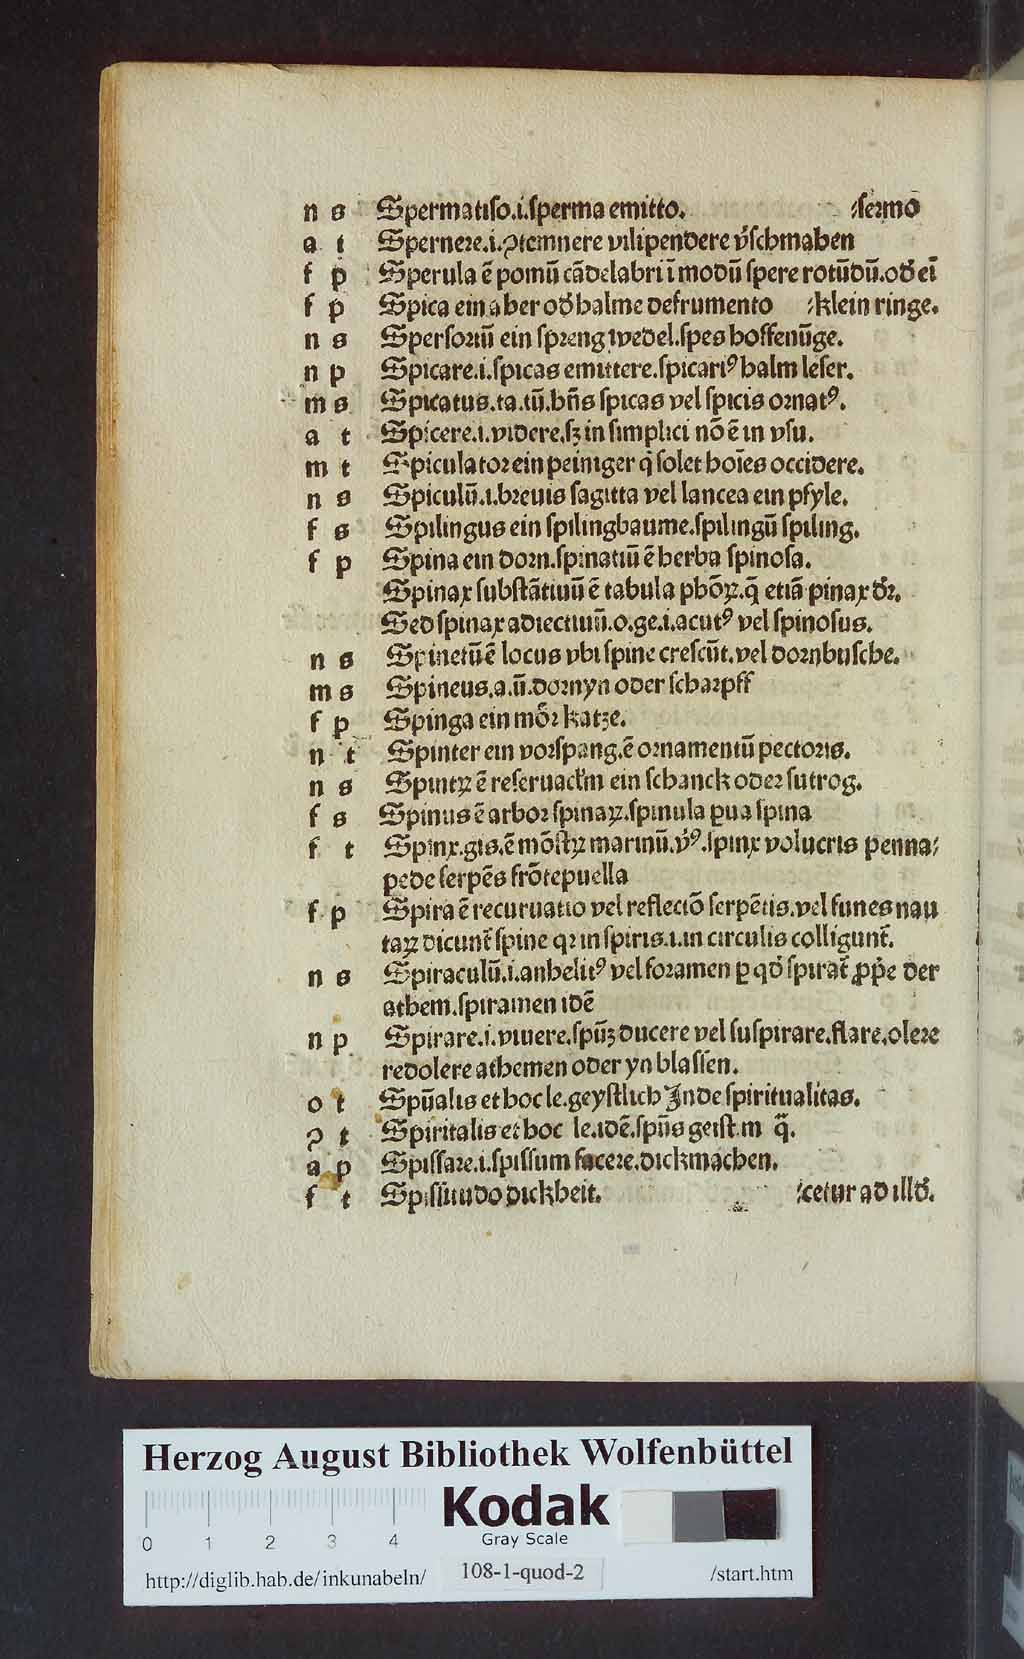 n s Spermatiso.i.sperma emitto. /sermo
a t Spernere.i.ꝯtemnere vilipendere v̓schmahen
f p Sperula ē pomū cādelabri ī modū spere rotūdū.od̓ eī
f p Spica ein aher od̓ halme de frumento /klein ringe.
n s Spersoriū ein spreng wedel.spes hoffenūge.
n p Spicare.i.spicas emittere.spicariꝰ halm leser.
m s Spicatus.ta.tū.hn̄s spicas vel spicis ornatꝰ.
a t Spicere.i.videre.sꝫ in simplici nō ē in vsu.
m t Spiculator ein peiniger q̇ solet hoīes occidere.
n s Spiculū.i.breuis sagitta vel lancea ein pfyle.
f s Spilingus ein spilingbaume.spilingū spiling.
f p Spina ein dorn.spinatiū ē herba spinosa.
Spinax substātiuū ē tabula phōꝝ.q̄ etiā pinax dr̄.
Sed spinax adiectiuū.o.ge.i.acutꝰ vel spinosus.
n s Spinetū ē locus vbi spine crescūt.vel dornbusche.
m s Spineus.a.ū.dornyn oder scharpff
f p Spinga ein mör katze.
n t Spinter ein vorspang.ē ornamentū pectoris.
n s Spintꝝ ē reseruacl̓m ein schanck oder sutrog.
f s Spinus ē arbor spinaꝝ.spinula ꝑua spina
f t Spinx.gis.ē mōstꝝ marinū.v̓ꝰ.spinx volucris penna/
pede serpēs frōte puella
f p Spira ē recuruatio vel reflectiō serpētis.vel funes nau
taꝝ dicunt̄ spine qꝛ in spiris.i.in circulis colligunt̄.
n s Spiraculū.i.anhelitꝰ vel foramen ꝑ qd̓ spirat̄ ꝓpⁱe der
athem.spiramen idē
n p Spirare.i.viuere.spūꝫ ducere vel suspirare.flare.olere
redolere athemen oder yn blassen.
o t Spūalis et hoc le.geystlich Inde spiritualitas.
ꝯ t Spiritalis et hoc le.idē.spūs geist.m q̄.
a p Spissare.i.spissum facere.dickmachen.
f t Spissitudo dickheit. /cetur ad illd̓.
Herzog August Bibliothek Wolfenbüttel
Kodak
Gray Scale
0 1 2 3 4
http://diglib.hab.de/inkunabeln/ 108-1-quod-2 /start.htm